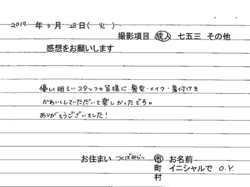 2019年5月28日(火)
撮影項目 成人 七五三 その他
感想をお願いします
優しく明るいスタッフの皆様に髪型・メイク・着付けを
かわいくしていただいて楽しかったです。
ありがとうございました!
お住まい つくばみらい 市 お名前
町 イニシャルで O.Y.
村